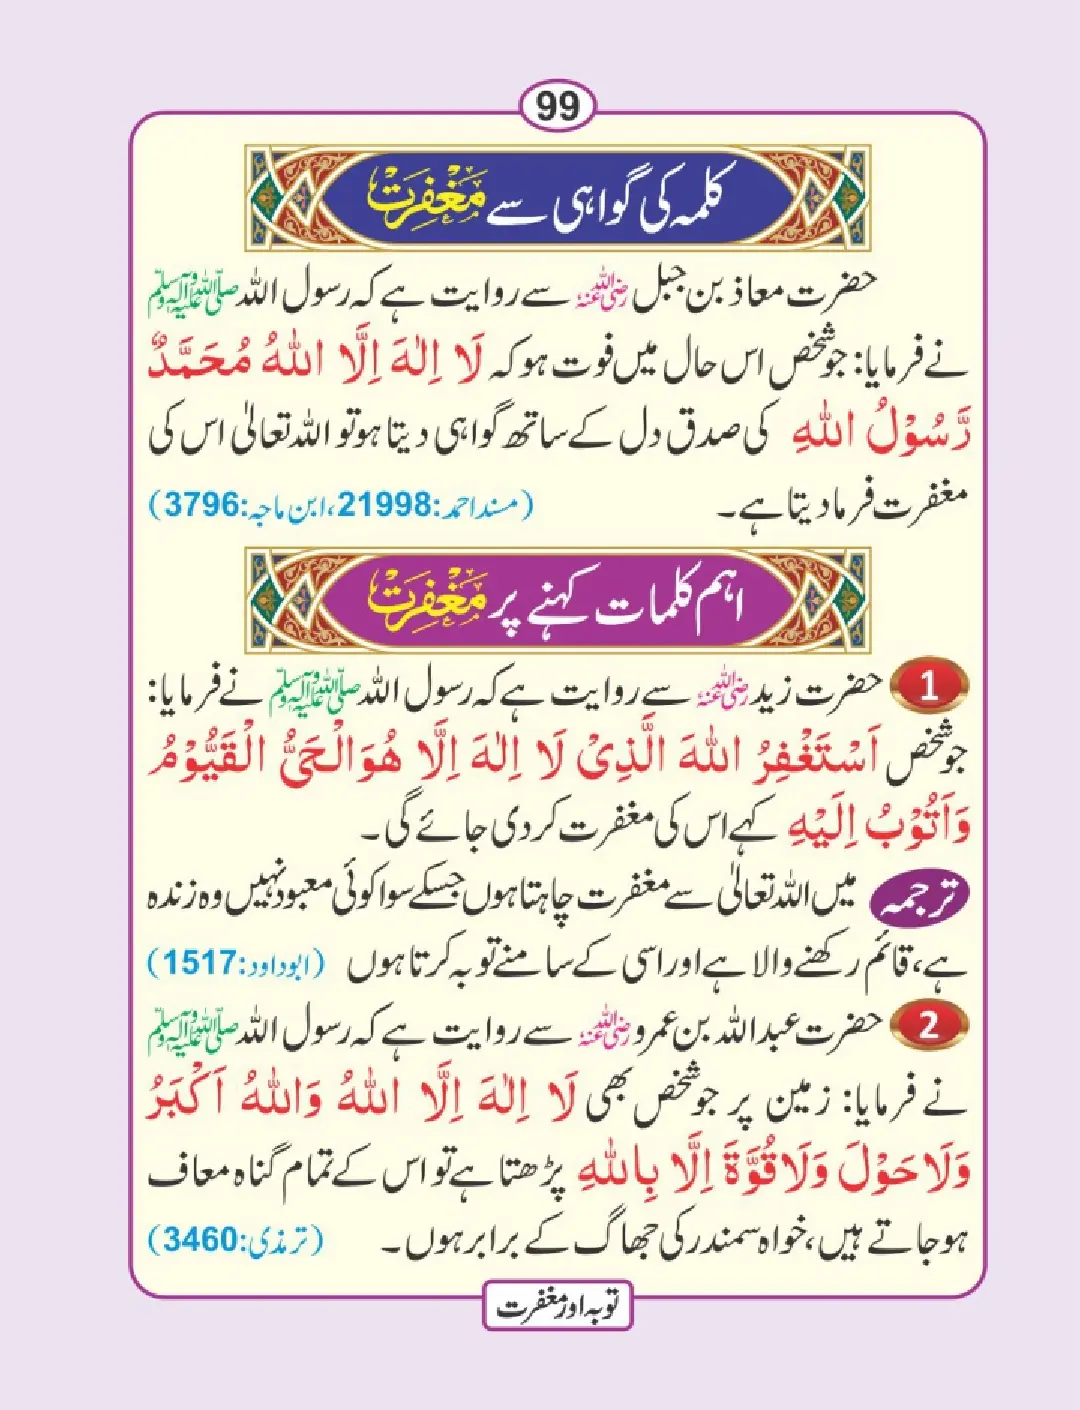 99
کلمہ کی گواہی سے مغفرت
حضرت معاذ بن جبل رضی اللہ عنہ سے روایت ہے کہ رسول اللہ صلی اللہ علیہ وآلہ وسلم
نے فرمایا: جو شخص اس حال میں فوت ہو کہ لَا اِلٰهَ اِلَّا اللهُ مُحَمَّدٌ
رَّسُوْلُ اللهِ کی صدق دل کے ساتھ گواہی دیتا ہو تو اللہ تعالیٰ اس کی
مغفرت فرما دیتا ہے۔ (مسند احمد:21998، ابن ماجہ:3796)
اہم کلمات کہنے پر مغفرت
1 حضرت زید رضی اللہ عنہ سے روایت ہے کہ رسول اللہ صلی اللہ علیہ وآلہ وسلم نے فرمایا:
جو شخص اَسْتَغْفِرُ اللهَ الَّذِیْ لَا اِلٰهَ اِلَّا هُوَ الْحَیُّ الْقَیُّوْمُ
وَاَتُوْبُ اِلَیْهِ کہے اس کی مغفرت کر دی جائے گی۔
ترجمہ میں اللہ تعالیٰ سے مغفرت چاہتا ہوں جسکے سوا کوئی معبود نہیں وہ زندہ
ہے، قائم رکھنے والا ہے اور اسی کے سامنے توبہ کرتا ہوں (ابوداود:1517)
2 حضرت عبداللہ بن عمرو رضی اللہ عنہ سے روایت ہے کہ رسول اللہ صلی اللہ علیہ وآلہ وسلم
نے فرمایا: زمین پر جو شخص بھی لَا اِلٰهَ اِلَّا اللهُ وَاللهُ اَکْبَرُ
وَلَا حَوْلَ وَلَا قُوَّةَ اِلَّا بِاللهِ پڑھتا ہے تو اس کے تمام گناہ معاف
ہو جاتے ہیں، خواہ سمندر کی جھاگ کے برابر ہوں۔ (ترمذی:3460)
توبہ اور مغفرت